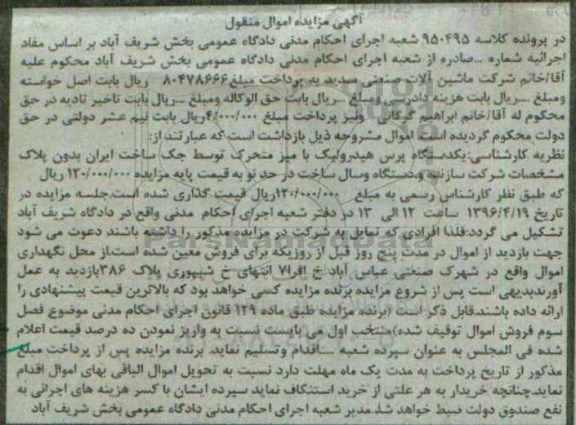 آگهی مزایده اموال منقول
در پرونده کلاسه ۹۵۰۴۹۵ شعبه اجرای احکام مدنی دادگاه عمومی بخش شریف آباد بر اساس مفاد
اجرائیه شماره ...صادره از شعبه اجرای احکام مدنی دادگاه عمومی بخش شریف آباد محکوم علیه
آقا/خانم شرکت ماشین آلات صنعتی سدید به پرداخت مبلغ ۸۰۴۷۸۶۶۶ ریال بابت اصل خواسته
ومبلغ ...ریال بابت هزینه دادرسی ومبلغ ...ریال بابت حق الوکاله ومبلغ ...ریال بابت تاخیر تادیه در حق
محکوم له آقا/خانم ابراهیم گرگانی ونیز پرداخت مبلغ ۴/۰۰۰/۰۰۰ریال بابت نیم عشر دولتی در حق
دولت محکوم گردیده است اموال مشروحه ذیل بازداشت است که عبارتند از:
نظریه کارشناسی:یکدستگاه پرس هیدرولیک با میز متحرک توسط جک ساخت ایران بدون پلاک
مشخصات شرکت سازنده ودستگاه وسال ساخت در حد نو به قیمت پایه مزایده ۱۲۰/۰۰۰/۰۰۰ ریال
که طبق نظر کارشناس رسمی به مبلغ ۱۲۰/۰۰۰/۰۰۰ریال قیمت گذاری شده است.جلسه مزایده در
تاریخ ۱۳۹۶/۴/۱۹ ساعت ۱۲ الی ۱۳ در دفتر شعبه اجرای احکام مدنی واقع در دادگاه شریف آباد
تشکیل می گردد:فلذا افرادی که تمایل به شرکت در مزایده مذکور را داشته باشند دعوت می شود
جهت بازدید از اموال در مدت پنج روز قبل از روزیکه برای فروش معین شده است.از محل نگهداری
اموال واقع در شهرک صنعتی عباس آباد خ ابهر۷ انتهای خ شیپوری پلاک ۳۸۶بازدید به عمل
آورند.بدیهی است پس از شروع مزایده برنده مزایده کسی خواهد بود که بالاترین قیمت پیشنهادی را
ارائه داده باشند.قابل ذکر است (برنده مزایده طبق ماده ۱۲۹ قانون اجرای احکام مدنی موضوع فصل
سوم فروش اموال توقیف شده)منتخب اول می بایست نسبت به واریز نمودن ده درصد قیمت اعلام
شده فی المجلس به عنوان سپرده شعبه ...اقدام وتسلیم نماید. برنده مزایده پس از پرداخت مبلغ
مذکور از تاریخ پرداخت به مدت یک ماه مهلت دارد نسبت به تحویل اموال الباقی بهای اموال اقدام
نماید.چنانچه خریدار به هر علتی از خرید استنکاف نماید سپرده ایشان با کسر هزینه های اجرائی به
نفع صندوق دولت ضبط خواهد شد.مدیر شعبه اجرای احکام مدنی دادگاه عمومی بخش شریف آباد
ParsNamadData